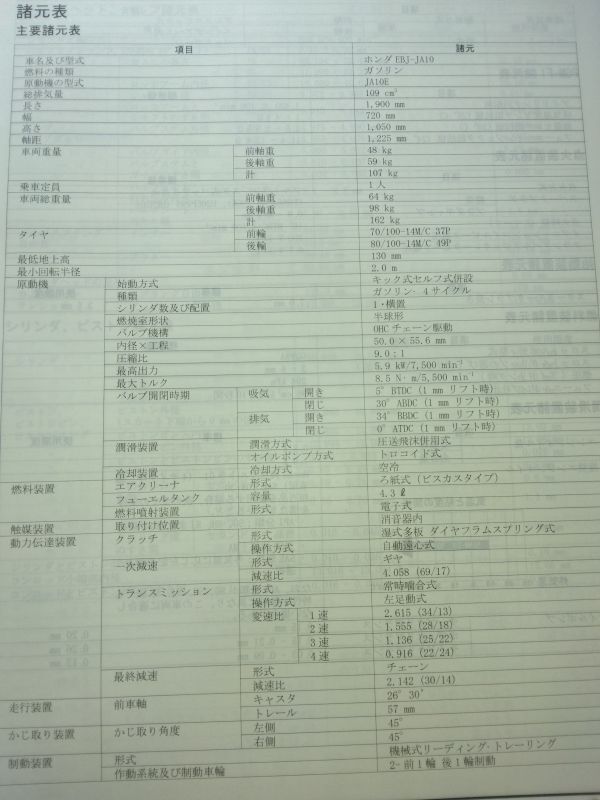 諸元表
主要諸元表
項目 諸元
車名及び型式 ホンダ EBJ-JA10
燃料の種類 ガソリン
原動機の型式 JA10E
総排気量 109 cm³
長さ 1,900 mm
幅 720 mm
高さ 1,050 mm
軸距 1,225 mm
車両重量 前軸重 48 kg
後軸重 59 kg
計 107 kg
乗車定員 1 人
車両総重量 前軸重 64 kg
後軸重 98 kg
計 162 kg
タイヤ 前輪 70/100-14M/C 37P
後輪 80/100-14M/C 49P
最低地上高 130 mm
最小回転半径 2.0 m
原動機 始動方式 キック式セルフ式併設
種類 ガソリン・4サイクル
シリンダ数及び配置 1・横置
燃焼室形状 半球形
バルブ機構 OHC チェーン駆動
内径×工程 50.0 × 55.6 mm
圧縮比 9.0：1
最高出力 5.9 kW/7,500 min⁻¹
最大トルク 8.5 N・m/5,500 min⁻¹
バルブ開閉時期 吸気 開き 5° BTDC (1 mm リフト時)
閉じ 30° ABDC (1 mm リフト時)
排気 開き 34° BBDC (1 mm リフト時)
閉じ 0° ATDC (1 mm リフト時)
潤滑装置 潤滑方式 圧送飛沫併用式
オイルポンプ方式 トロコイド式
冷却装置 冷却方式 空冷
燃料装置 エアクリーナ 形式 ろ紙式 (ビスカスタイプ)
フューエルタンク 容量 4.3 ℓ
燃料噴射装置 形式 電子式
触媒装置 取り付け位置 消音器内
動力伝達装置 クラッチ 形式 湿式多板 ダイヤフラムスプリング式
操作方式 自動遠心式
一次減速 形式 ギヤ
減速比 4.058 (69/17)
トランスミッション 形式 常時噛合式
操作方式 左足動式
変速比 1速 2.615 (34/13)
2速 1.555 (28/18)
3速 1.136 (25/22)
4速 0.916 (22/24)
最終減速 形式 チェーン
減速比 2.142 (30/14)
走行装置 前車軸 キャスタ 26° 30'
トレール 57 mm
かじ取り装置 かじ取り角度 左側 45°
右側 45°
制動装置 形式 機械式リーディング・トレーリング
作動系統及び制動車輪 2- 前1輪 後1輪制動